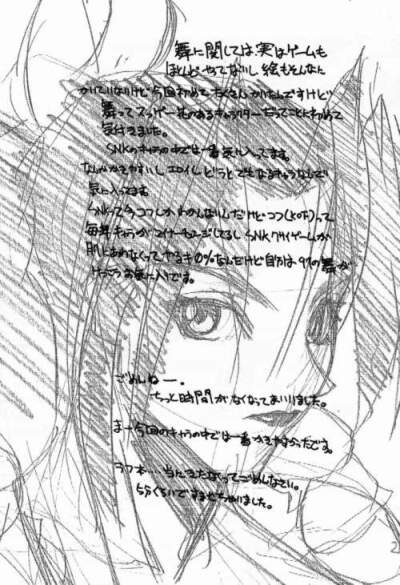 舞に関しては、実はゲームも
ほとんどやってないし 絵もそんなに
かいていないけど 今回初めてたくさんかいたんですけど
舞ってスッゲー 花のあるキャラクターだってことに初めて
気付きました。
SNKのキャラの中では一番気に入ってます。
なんかかきやすいし エロイし どうとでもなるキャラなんで
気に入ってます
SNKって今コツしかわかんないんだけど コツ(KOF)って
毎年キャラが してるし SNKゲームが
肌にあわなくって やる気0%なんだけど 自分は 97の舞が
けっこうお気に入りです。
ごめんねー。
ちっと時間がなくなってまいりました。
まー今回のキャラの中では一番かきやすかったです。
ラフ本… 当にきたなくってごめんなさい。
5分くらいで しちゃいました。
2